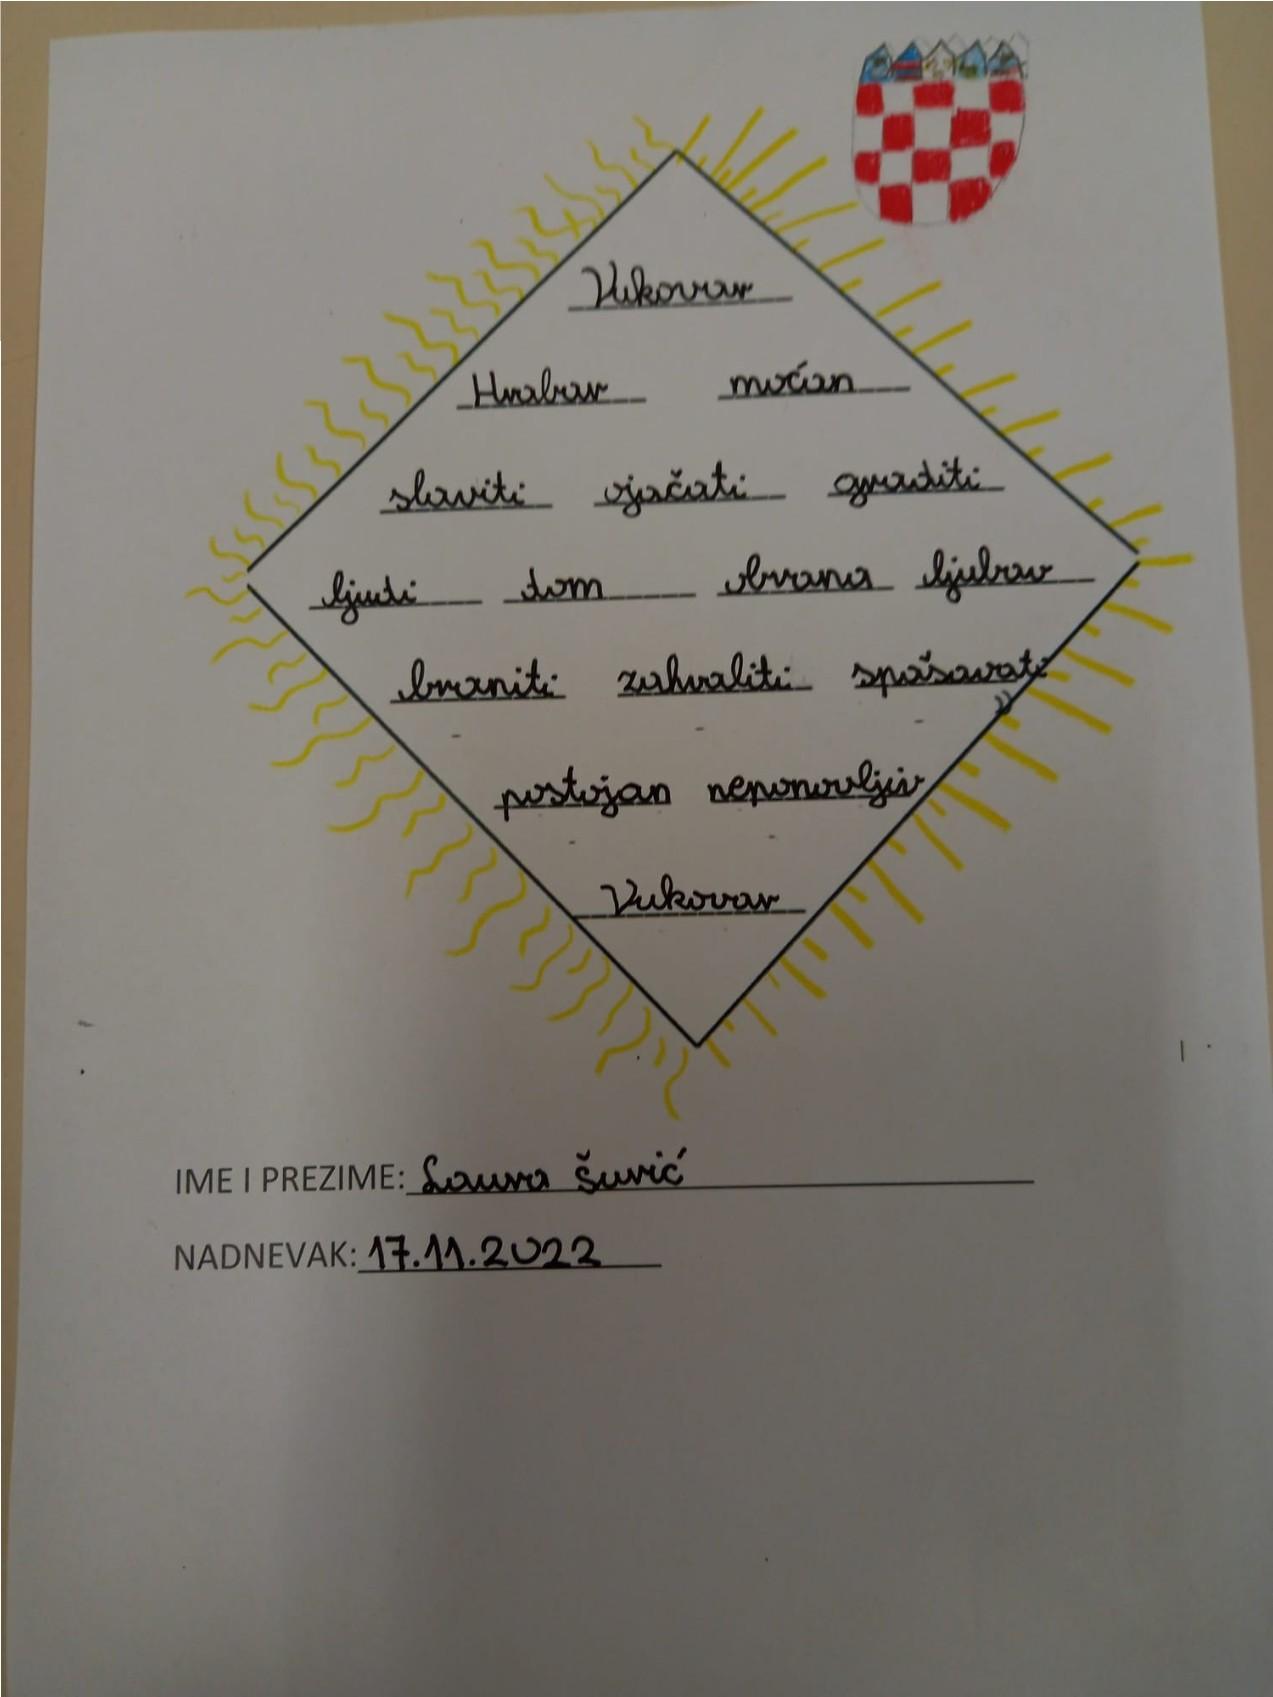 Vukovar
Hrabar moćan
slaviti ojačati graditi
ljudi dom obrana ljubav
braniti zahvaliti spašavati
postojan neponovljiv
Vukovar
IME I PREZIME: Laura Šurić
NADNEVAK: 17.11.2022